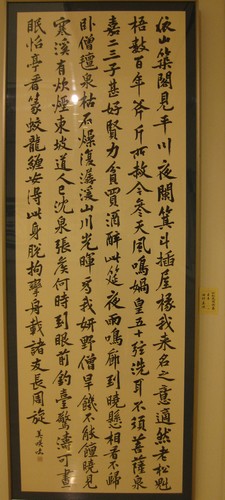 依山築閣見平川夜闌箕斗插屋椽我來名之意適然老松魁
梧數百年斧斤所赦今參天風鳴媧皇五十弦洗耳不須菩薩泉
嘉二三子甚好賢力貧買酒醉此筵夜雨鳴廊到曉懸相看不歸
卧僧氊泉枯石燥復潺湲山川光暉為我妍野僧旱饑不能饘曉見
寒溪有炊煙東坡道人已沈泉張侯何時到眼前釣臺驚濤可晝
眠怡亭看篆蛟龍纏安得此身脫拘攣舟載諸友長周旋